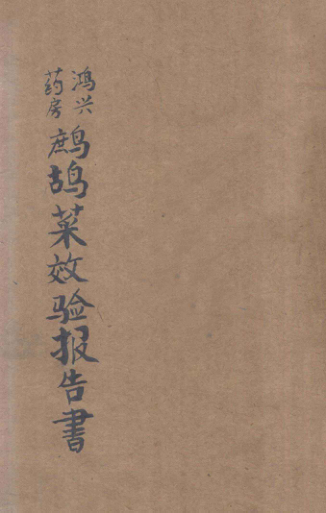 鸿兴
药房
鹧鸪菜效验报告書